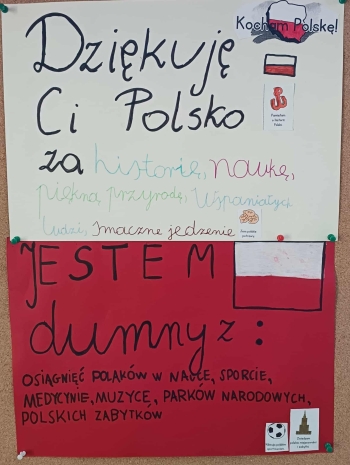 Kocham Polskę!
Dziękuję
Ci Polsko
za historię, naukę,
piękną przyrodę, wspaniałych
ludzi, smaczne jedzenie
JESTEM
dumny z:
OSIĄGNIĘĆ POLAKÓW W NAUCE, SPORCIE,
MEDYCYNIE, MUZYCE, PARKÓW NARODOWYCH,
POLSKICH ZABYTKÓW